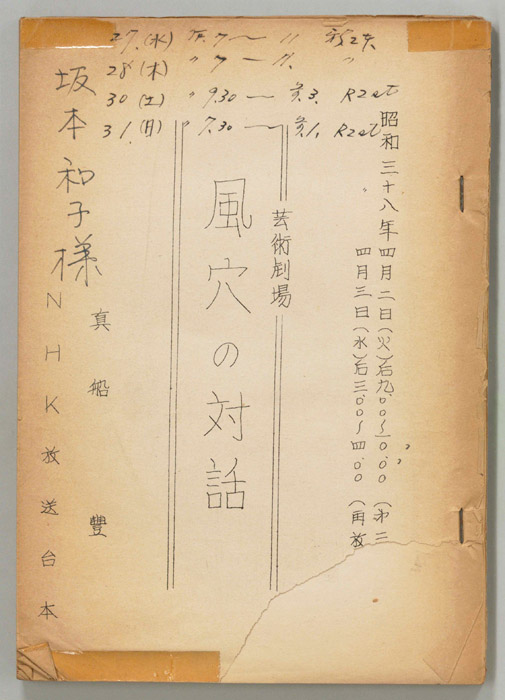 27.(水) 〃 7 — 11
28(木) 〃 7 — 11. 〃
30(土) 〃 9.30 — 3. R2st
31.(日) 〃 7.30 — 1. R2st
昭和三十八年四月二日(火)后九.〇〇〜一〇.〇〇(第三
〃 四月三日(水)后三.〇〇〜四.〇〇(再放
芸術劇場
風穴の対話
真船豐
坂本和子様
NHK放送台本